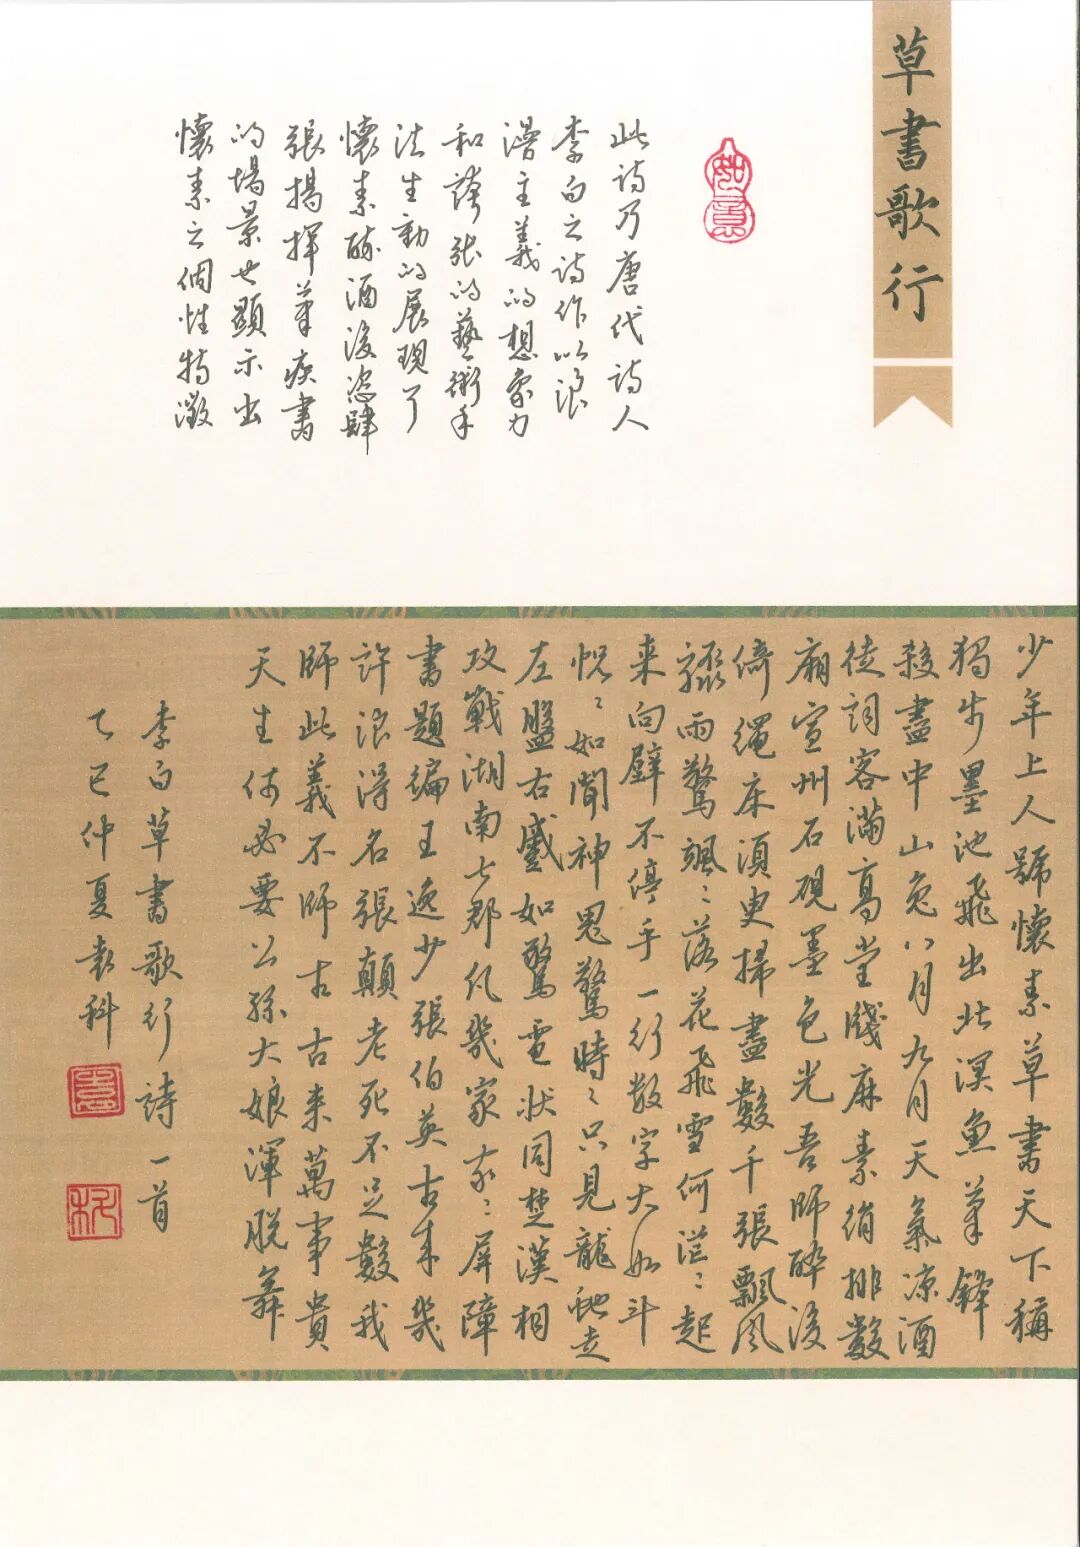 草書歌行
如意
此詩乃唐代詩人
李白之詩作以浪
漫主義的想象力
和誇張的藝術手
法生動的展現了
懷素醉酒後恣肆
張揚揮筆疾書
的場景也顯示出
懷素之個性特徵
少年上人號懷素草書天下稱
獨步墨池飛出北溟魚筆鋒
殺盡中山兔八月九月天氣凉酒
徒詞客滿高堂牋麻素絹排數
廂宣州石硯墨色光吾師醉後
倚繩床須臾掃盡數千張飄風
驟雨驚颯〻落花飛雪何茫〻起
来向壁不停手一行数字大如斗
怳〻如聞神鬼驚時〻只見龍虵走
左盤右蹙如驚電狀同楚漢相
攻戰湖南七郡凡幾家家〻屏障
書題遍王逸少張伯英古来幾
許浪得名張顛老死不足數我
師此義不師古古来萬事貴
天生何必要公孫大娘渾脱舞
李白草書歌行詩一首
乙巳仲夏袁科